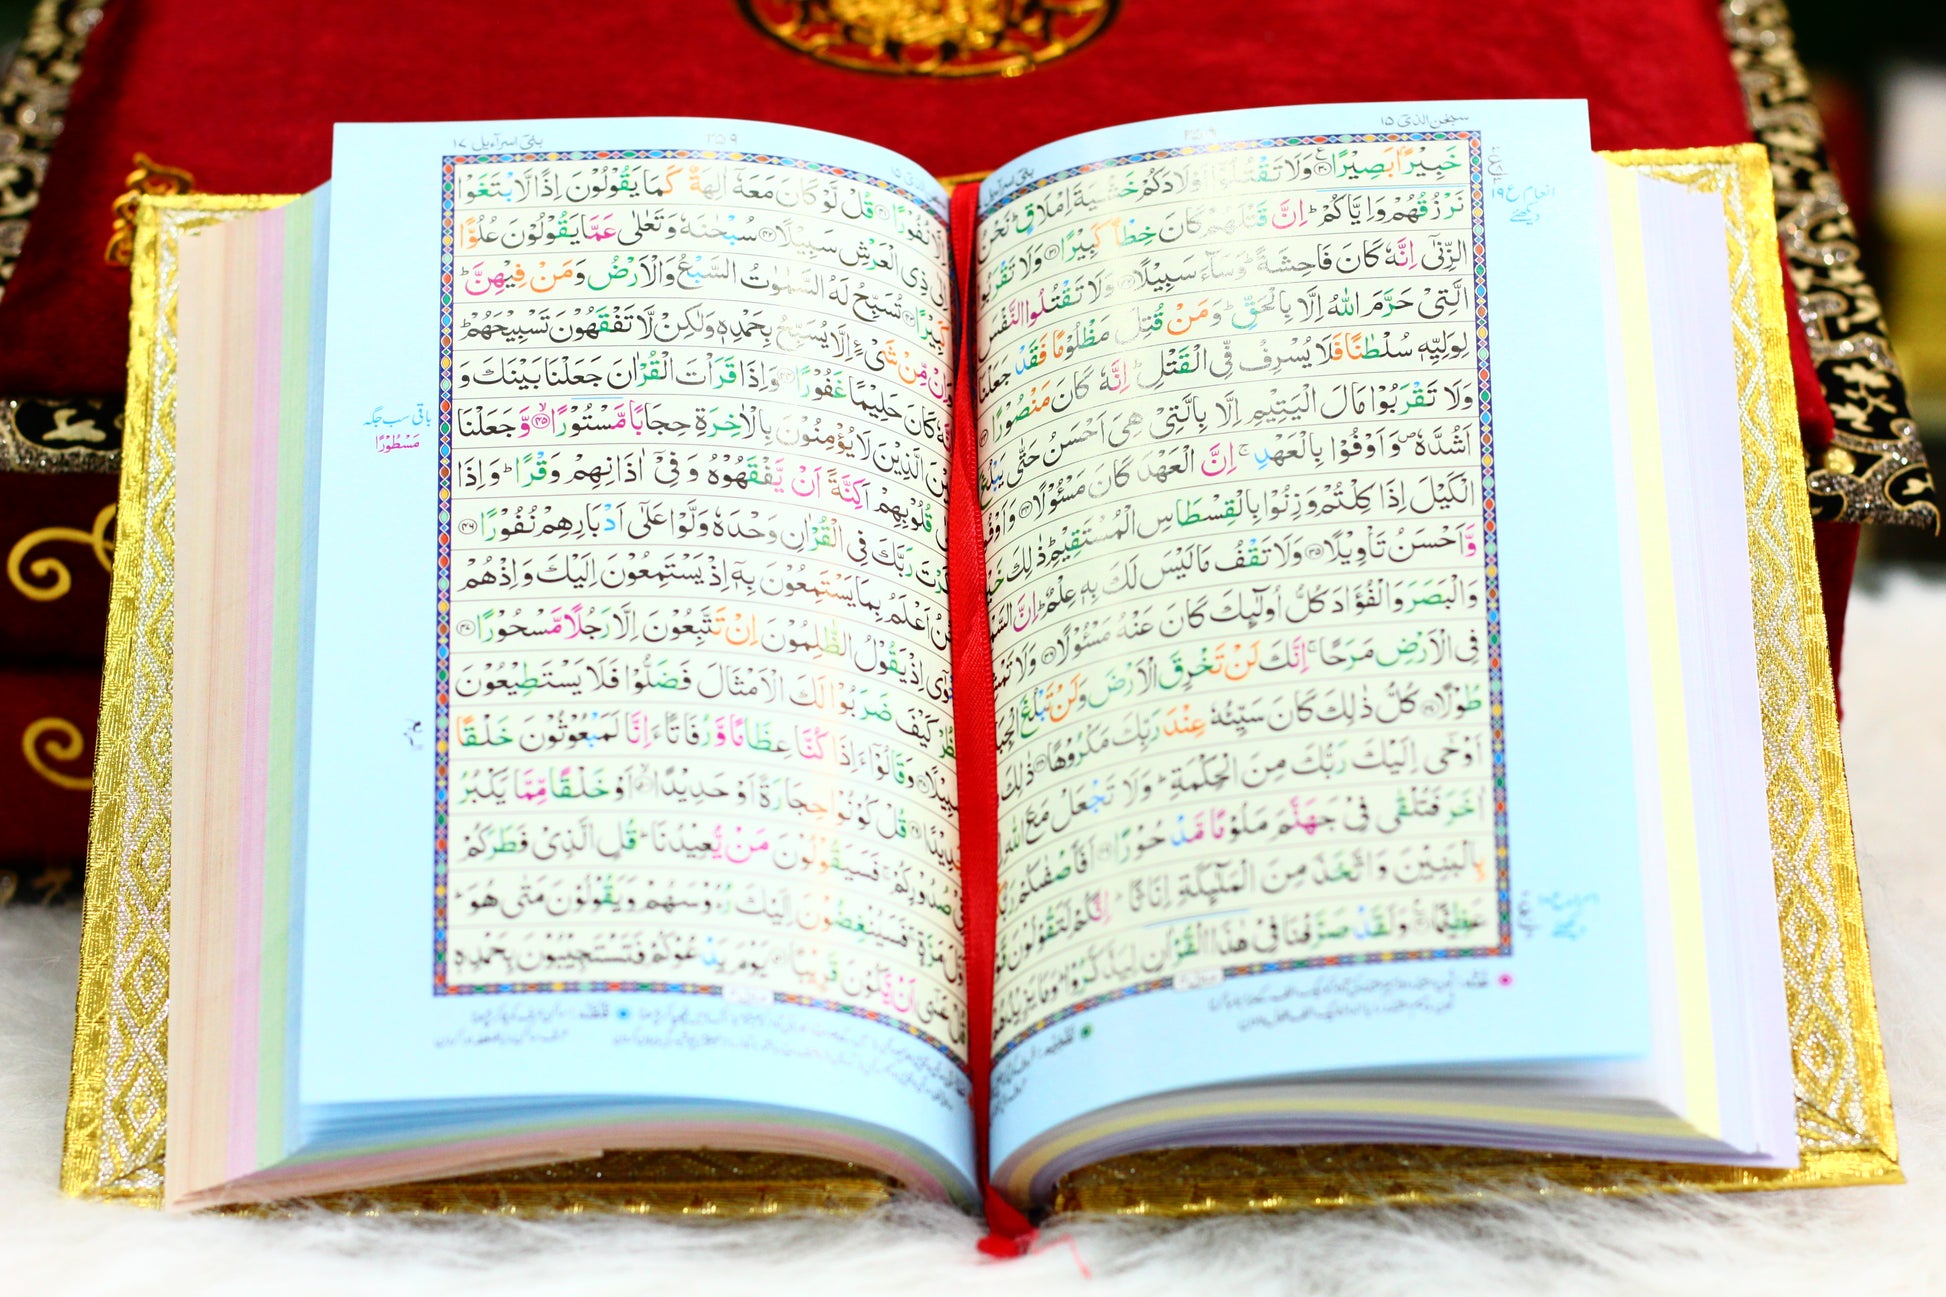 سبحٰن الذیٓ ۱۵
خَبِيْرًۢا بَصِيْرًا ﴿۳۰﴾ وَلَا تَقْتُلُوْۤا اَوْلَادَكُمْ خَشْيَةَ اِمْلَاقٍ ؕ نَحْنُ
نَرْزُقُهُمْ وَاِيَّاكُمْ ؕ اِنَّ قَتْلَهُمْ كَانَ خِطْاً كَبِيْرًا ﴿۳۱﴾ وَلَا تَقْرَبُوا
الزِّنٰۤى اِنَّهٗ كَانَ فَاحِشَةً ؕ وَسَآءَ سَبِيْلًا ﴿۳۲﴾ وَلَا تَقْتُلُوا النَّفْسَ
الَّتِىْ حَرَّمَ اللّٰهُ اِلَّا بِالْحَقِّ ؕ وَمَنْ قُتِلَ مَظْلُوْمًا فَقَدْ جَعَلْنَا
لِوَلِيِّهٖ سُلْطٰنًا فَلَا يُسْرِفْ فِّى الْقَتْلِ ؕ اِنَّهٗ كَانَ مَنْصُوْرًا ﴿۳۳﴾
وَلَا تَقْرَبُوْا مَالَ الْيَتِيْمِ اِلَّا بِالَّتِىْ هِىَ اَحْسَنُ حَتّٰى يَبْلُغَ
اَشُدَّهٗ ۪ وَاَوْفُوْا بِالْعَهْدِ ۚ اِنَّ الْعَهْدَ كَانَ مَسْـُٔوْلًا ﴿۳۴﴾ وَاَوْفُوا
الْكَيْلَ اِذَا كِلْتُمْ وَزِنُوْا بِالْقِسْطَاسِ الْمُسْتَقِيْمِ ؕ ذٰلِكَ
وَّاَحْسَنُ تَاْوِيْلًا ﴿۳۵﴾ وَلَا تَقْفُ مَا لَيْسَ لَكَ بِهٖ عِلْمٌ ؕ اِنَّ
وَالْبَصَرَ وَالْفُؤَادَ كُلُّ اُولٰٓئِكَ كَانَ عَنْهُ مَسْـُٔوْلًا ﴿۳۶﴾ وَلَا
فِى الْاَرْضِ مَرَحًا ۚ اِنَّكَ لَنْ تَخْرِقَ الْاَرْضَ وَلَنْ تَبْلُغَ
طُوْلًا ﴿۳۷﴾ كُلُّ ذٰلِكَ كَانَ سَيِّئُهٗ عِنْدَ رَبِّكَ مَكْرُوْهًا ﴿۳۸﴾ ذٰلِكَ
اَوْحٰۤى اِلَيْكَ رَبُّكَ مِنَ الْحِكْمَةِ ؕ وَلَا تَجْعَلْ مَعَ اللّٰهِ
اٰخَرَ فَتُلْقٰى فِىْ جَهَنَّمَ مَلُوْمًا مَّدْحُوْرًا ﴿۳۹﴾ اَفَاَصْفٰىكُمْ
بِالْبَنِيْنَ وَاتَّخَذَ مِنَ الْمَلٰٓئِكَةِ اِنَاثًا ؕ اِنَّكُمْ لَتَقُوْلُوْنَ
عَظِيْمًا ﴿۴۰﴾ وَلَقَدْ صَرَّفْنَا فِىْ هٰذَا الْقُرْاٰنِ لِيَذَّكَّرُوْا ؕ وَمَا يَزِيْدُهُمْ
بنیٓ اسرآءیل ۱۷
۳۵۹
اِلَّا نُفُوْرًا ﴿۴۱﴾ قُلْ لَّوْ كَانَ مَعَهٗۤ اٰلِهَةٌ كَمَا يَقُوْلُوْنَ اِذًا لَّابْتَغَوْا
اِلٰى ذِى الْعَرْشِ سَبِيْلًا ﴿۴۲﴾ سُبْحٰنَهٗ وَتَعٰلٰى عَمَّا يَقُوْلُوْنَ عُلُوًّا
كَبِيْرًا ﴿۴۳﴾ تُسَبِّحُ لَهُ السَّمٰوٰتُ السَّبْعُ وَالْاَرْضُ وَمَنْ فِيْهِنَّ ؕ
وَاِنْ مِّنْ شَىْءٍ اِلَّا يُسَبِّحُ بِحَمْدِهٖ وَلٰكِنْ لَّا تَفْقَهُوْنَ تَسْبِيْحَهُمْ ؕ
اِنَّهٗ كَانَ حَلِيْمًا غَفُوْرًا ﴿۴۴﴾ وَاِذَا قَرَاْتَ الْقُرْاٰنَ جَعَلْنَا بَيْنَكَ وَ
بَيْنَ الَّذِيْنَ لَا يُؤْمِنُوْنَ بِالْاٰخِرَةِ حِجَابًا مَّسْتُوْرًا ﴿۴۵﴾ وَّجَعَلْنَا
قُلُوْبِهِمْ اَكِنَّةً اَنْ يَّفْقَهُوْهُ وَفِىْۤ اٰذَانِهِمْ وَقْرًا ؕ وَاِذَا
ذَكَرْتَ رَبَّكَ فِى الْقُرْاٰنِ وَحْدَهٗ وَلَّوْا عَلٰۤى اَدْبَارِهِمْ نُفُوْرًا ﴿۴۶﴾
نَحْنُ اَعْلَمُ بِمَا يَسْتَمِعُوْنَ بِهٖۤ اِذْ يَسْتَمِعُوْنَ اِلَيْكَ وَاِذْ هُمْ
نَجْوٰۤى اِذْ يَقُوْلُ الظّٰلِمُوْنَ اِنْ تَتَّبِعُوْنَ اِلَّا رَجُلًا مَّسْحُوْرًا ﴿۴۷﴾
اُنْظُرْ كَيْفَ ضَرَبُوْا لَكَ الْاَمْثَالَ فَضَلُّوْا فَلَا يَسْتَطِيْعُوْنَ
سَبِيْلًا ﴿۴۸﴾ وَقَالُوْۤا ءَاِذَا كُنَّا عِظَامًا وَّرُفَاتًا ءَاِنَّا لَمَبْعُوْثُوْنَ خَلْقًا
جَدِيْدًا ﴿۴۹﴾ قُلْ كُوْنُوْا حِجَارَةً اَوْ حَدِيْدًا ﴿۵۰﴾ اَوْ خَلْقًا مِّمَّا يَكْبُرُ
فِىْ صُدُوْرِكُمْ ۚ فَسَيَقُوْلُوْنَ مَنْ يُّعِيْدُنَا ؕ قُلِ الَّذِىْ فَطَرَكُمْ
اَوَّلَ مَرَّةٍ ۚ فَسَيُنْغِضُوْنَ اِلَيْكَ رُءُوْسَهُمْ وَيَقُوْلُوْنَ مَتٰى هُوَ ؕ
قُلْ عَسٰۤى اَنْ يَّكُوْنَ قَرِيْبًا ﴿۵۱﴾ يَوْمَ يَدْعُوْكُمْ فَتَسْتَجِيْبُوْنَ بِحَمْدِهٖ
باقی سب جگہ
مَسْطُوْرًا